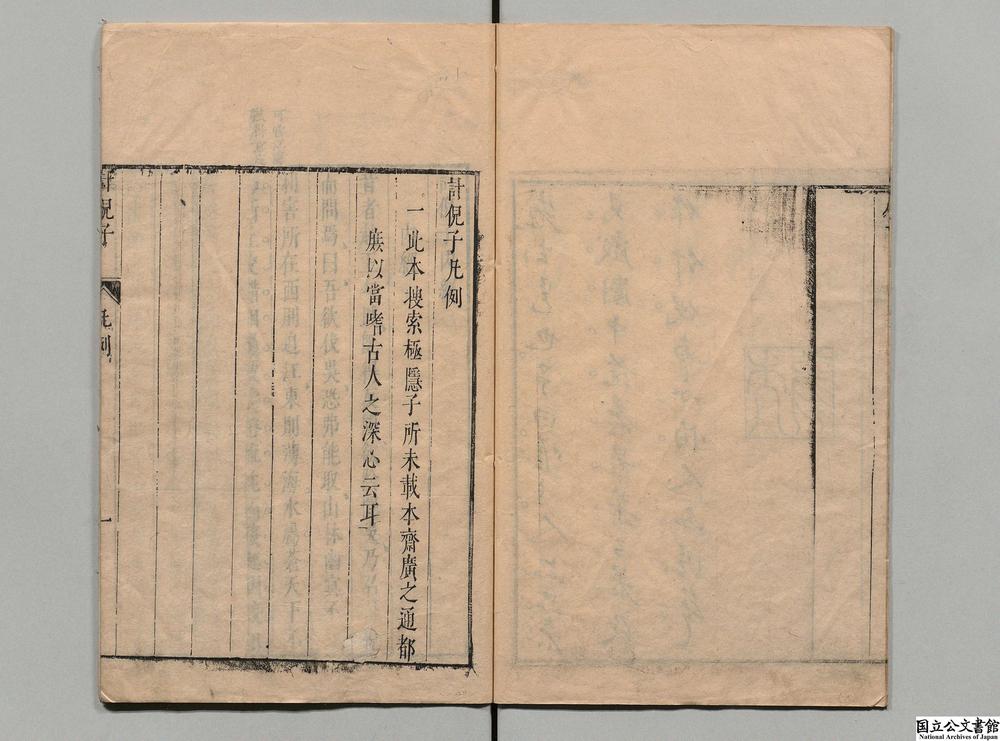 計倪子凡例
一此本搜索極隱子所未載本齋廣之通都
族以當嗜古人之深心云耳
計倪子
凡例
一
国立公文書館
National Archives of Japan